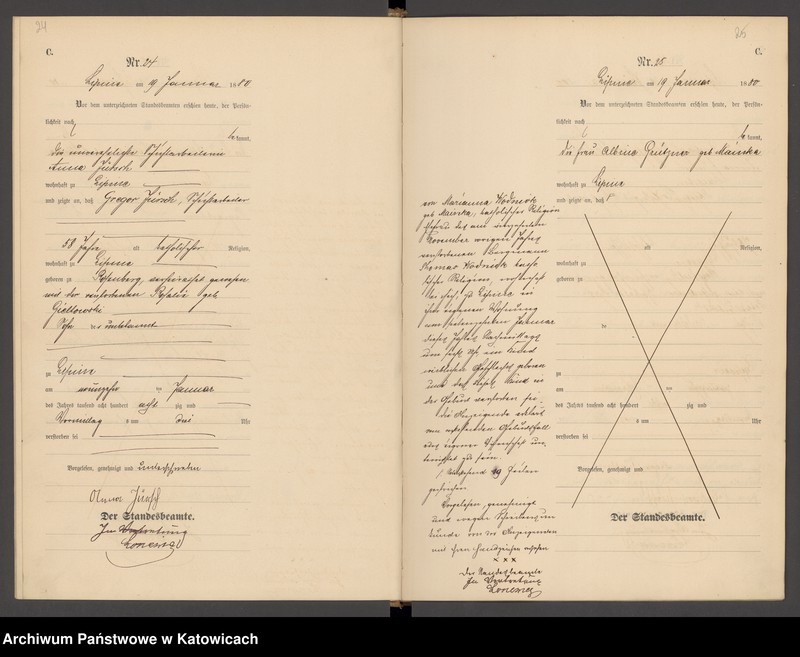 24
C.
Nr. 24
Lipine am 19 Januar 1880
Vor dem unterzeichneten Standesbeamten erschien heute, der Persön-
lichkeit nach
be kannt,
die unverehelichte
Anna Jüsch
wohnhaft zu Lipine
und zeigte an, daß Gregor Jüsch,
58 Jahre, alt katholischer Religion,
wohnhaft zu Lipine
geboren zu Rosenberg, verheirathet gewesen
mit der verstorbenen Rosalie geb
Sohn des unbekannt
zu Lipine
am neunzehn ten Januar
des Jahres tausend acht hundert acht zig und
Vormittag s um drei Uhr
verstorben sei
Vorgelesen, genehmigt und unterschrieben
Anna Jüsch
Der Standesbeamte.
In Vertretung
25
C.
Nr. 25
Lipine am 19 Januar 1880
Vor dem unterzeichneten Standesbeamten erschien heute, der Persön-
lichkeit nach
be kannt,
die Frau Albine Grützner geb Mainka
wohnhaft zu Lipine
und zeigte an, daß
alt Religion,
wohnhaft zu
geboren zu
de
zu
am ten
des Jahres tausend acht hundert zig und
s um Uhr
verstorben sei
Vorgelesen, genehmigt und
Der Standesbeamte.
von Marianna Wodniok
geb Mainka, katholischer Religion
November vorigen Jahres
verstorbenen Bergmann
Thomas Wodniok katho
lischer Religion, wohnhaft
bei ihr, zu Lipine in
ihrer Wohnung
am Januar
dieses Jahres Nachmittags
um fünf Uhr ein Kind
weiblichen Geschlechts geboren
und daß dieses Kind in
der Geburt verstorben sei.
die Anzeigende erklärt
von Geburtsfall
aus eigener Wissenschaft un-
terrichtet zu sein.
Vorstehend 19 Zeilen
gestrichen
Vorgelesen genehmigt
und wegen Schreibensun
kunde von der Anzeigenden
mit ihren Handzeichen versehen
x x x
Der Standesbeamte
In Vertretung
Archiwum Państwowe w Katowicach